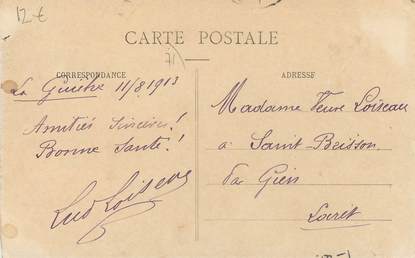 12 €
CARTE POSTALE
71
CORRESPONDANCE
ADRESSE
La 11/8 1913
Amitiés Sincères!
Bonne Santé!
Lud Loiseau
Madame Veuve Loiseau
a Saint-Brisson
par Gien
Loiret